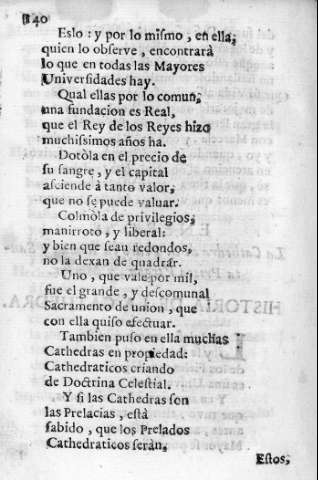 140
Eslo : y por lo mismo , en ella,
quien lo observe , encontrarà
lo que en todas las Mayores
Universidades hay.
Qual ellas por lo comun,
una fundacion es Real,
que el Rey de los Reyes hizo
muchissimos años ha.
Dotòla en el precio de
su sangre , y el capital
asciende à tanto valor,
que no se puede valuar.
Colmòla de privilegios,
manirroto , y liberal:
y bien que sean redondos,
no la dexan de quadràr.
Uno , que vale por mil,
fue el grande , y descomunal
Sacramento de union , que
con ella quiso efectuar.
Tambien puso en ella muchas
Cathedras en propiedad:
Cathedraticos criando
de Doctrina Celestial.
Y si las Cathedras son
las Prelacias , està
sabido , que los Prelados
Cathedraticos seràn.
Estos,